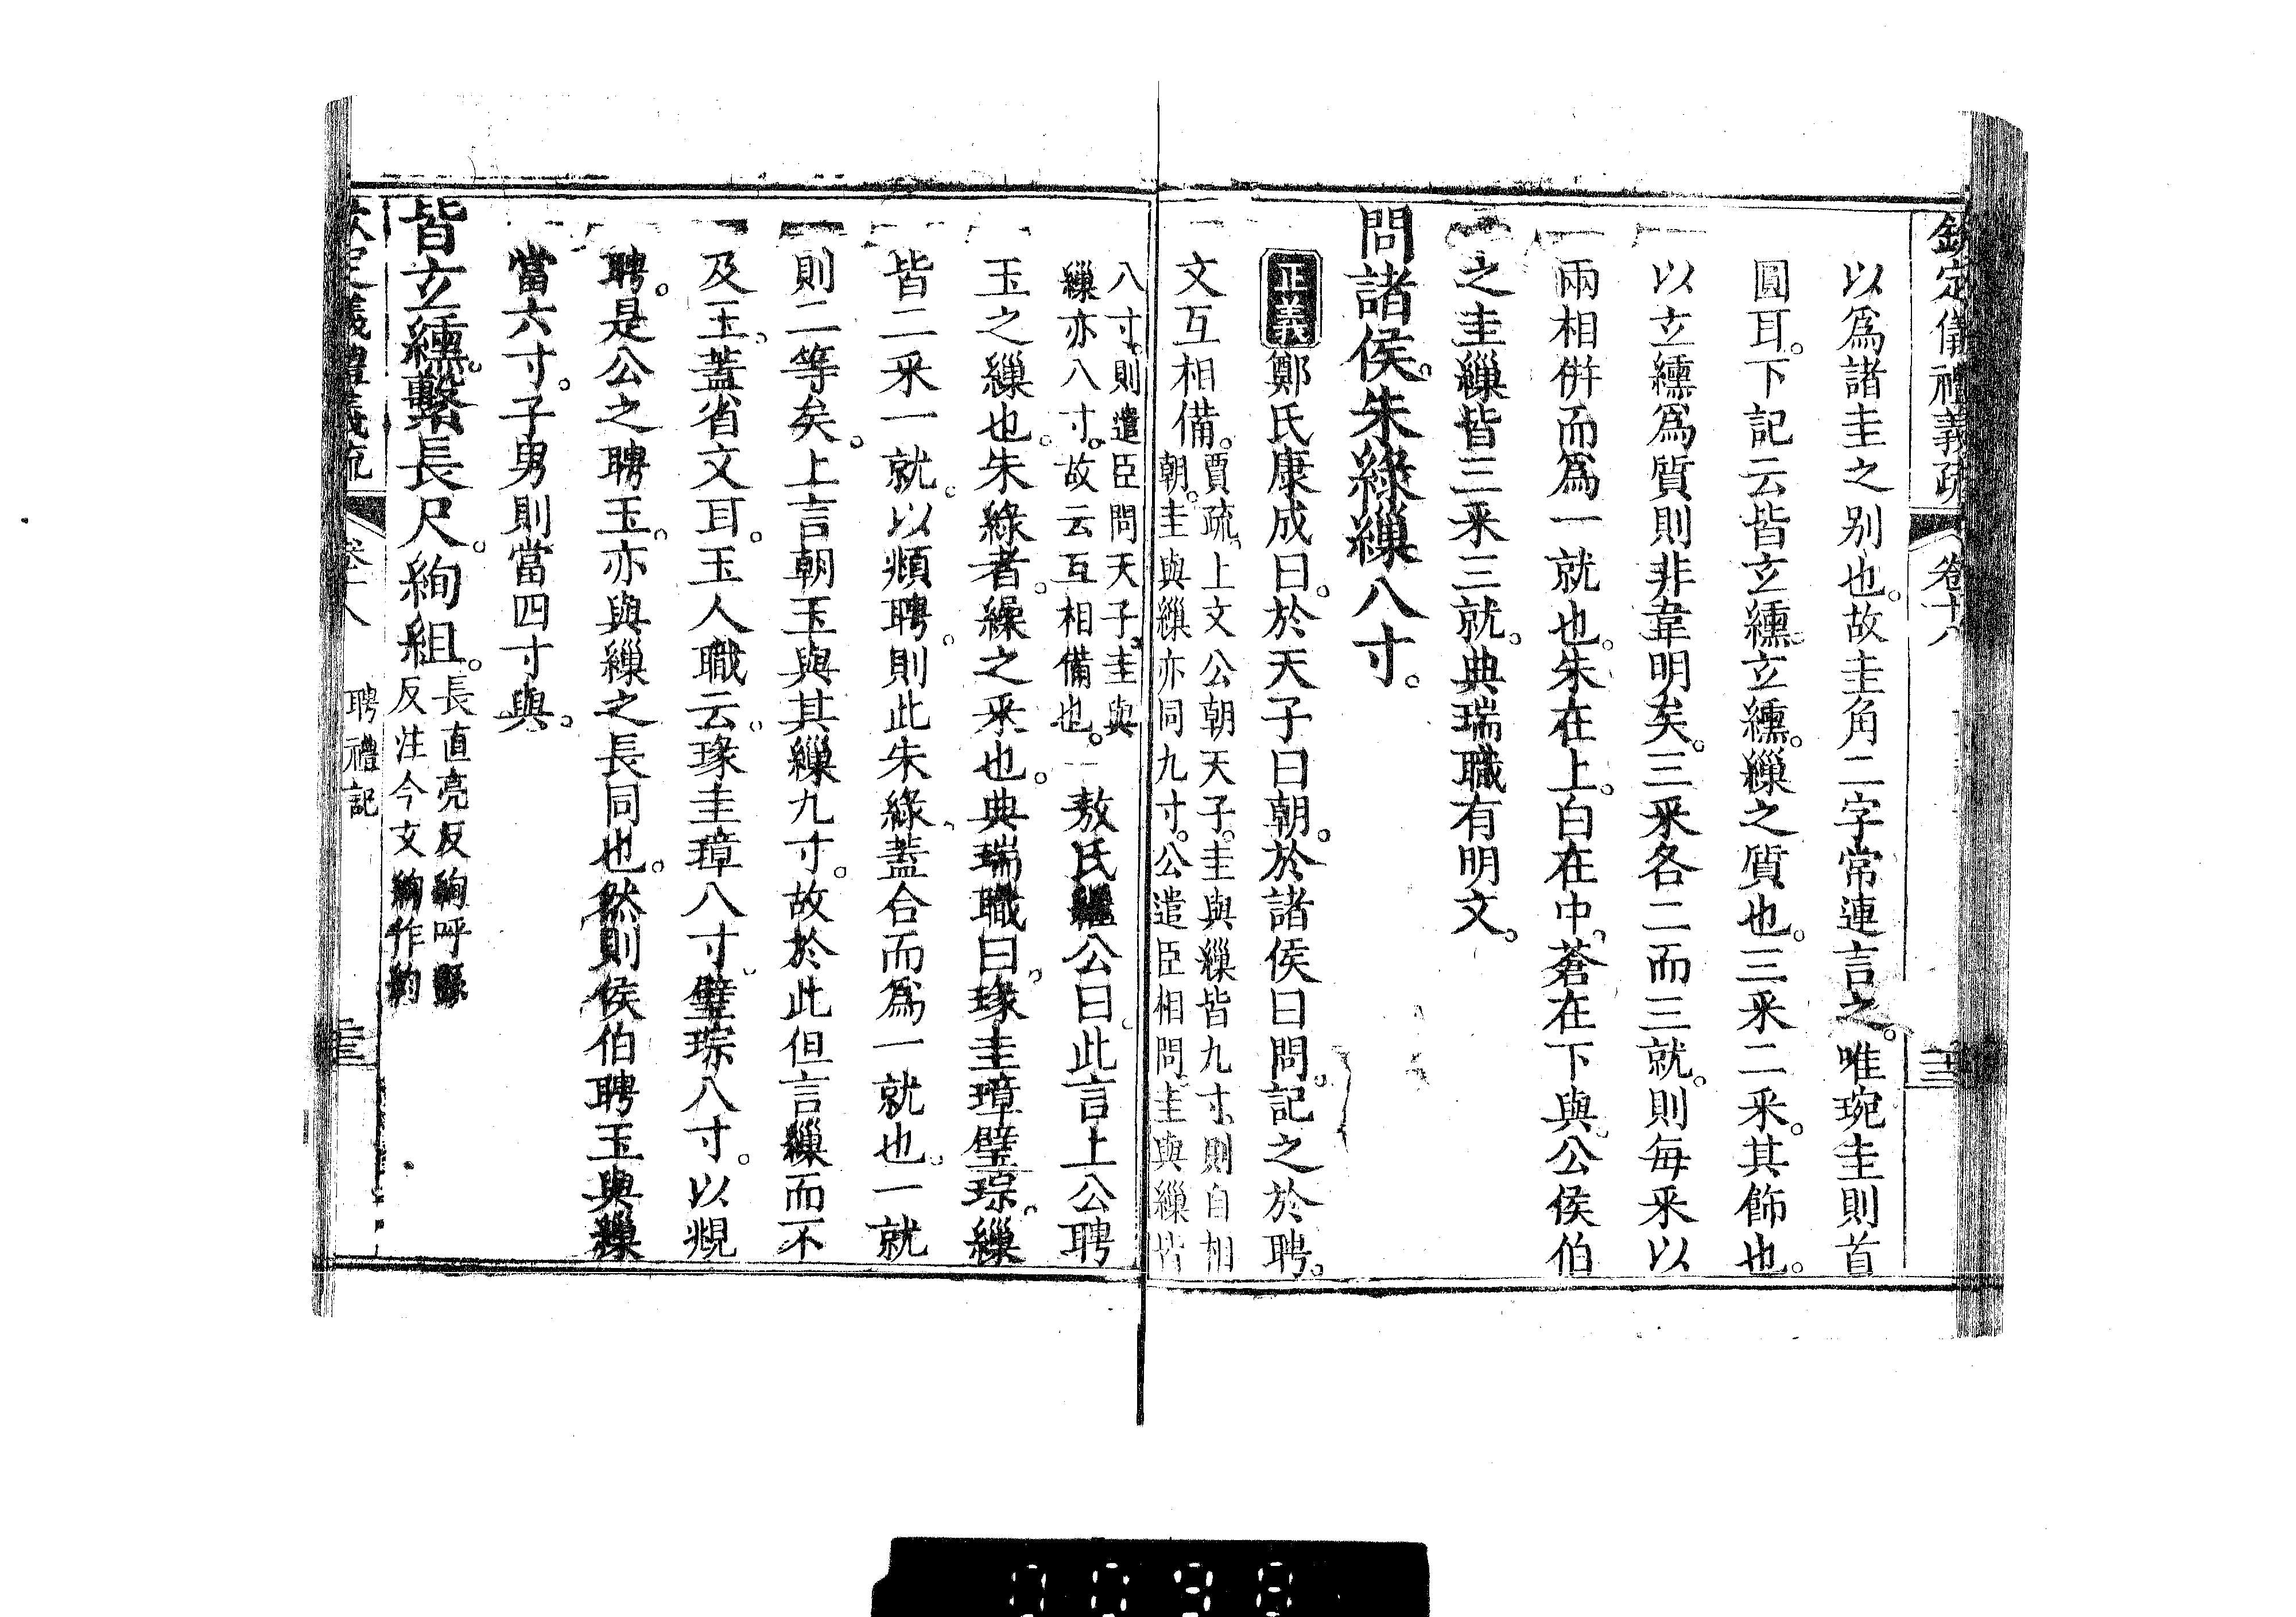 欽定儀禮義疏 卷十八
以爲諸圭之别也。故圭角二字常連言之。唯琬圭則首
圓耳。下記云皆玄纁。玄纁。繅之質也。三采二采。其飾也。
以玄纁爲質則非韋明矣。三采各二而三就。則每采以
兩相併而爲一就也。朱在上。白在中。蒼在下與。公侯伯
之圭繅皆三采三就。典瑞職有明文。
問諸侯。朱綠繅。八寸。
正義鄭氏康成曰。於天子曰朝。於諸侯曰問。記之於聘。
文互相備。賈疏。上文公朝天子。圭與繅皆九寸。則自相
朝。圭與繅亦同九寸。公遣臣相問圭與繅皆
八寸。則遣臣問天子。圭與
繅亦八寸。故云互相備也。 敖氏繼公曰。此言上公聘
玉之繅也。朱綠者。繅之采也。典瑞職曰。瑑圭璋璧琮。繅
皆二采一就。以頫聘。則此朱綠。蓋合而爲一就也。一就
則二等矣。上言朝玉與其繅九寸。故於此但言繅而不
及玉。蓋省文耳。玉人職云。瑑圭璋八寸。璧琮八寸。以覜
聘。是公之聘玉。亦與繅之長同也。然則侯伯聘玉與繅
當六寸。子男則當四寸與。
皆玄纁。繫長尺。絢組。長直亮反絢呼縣
反注今文絢作約
欽定儀禮義疏 卷十八 聘禮記